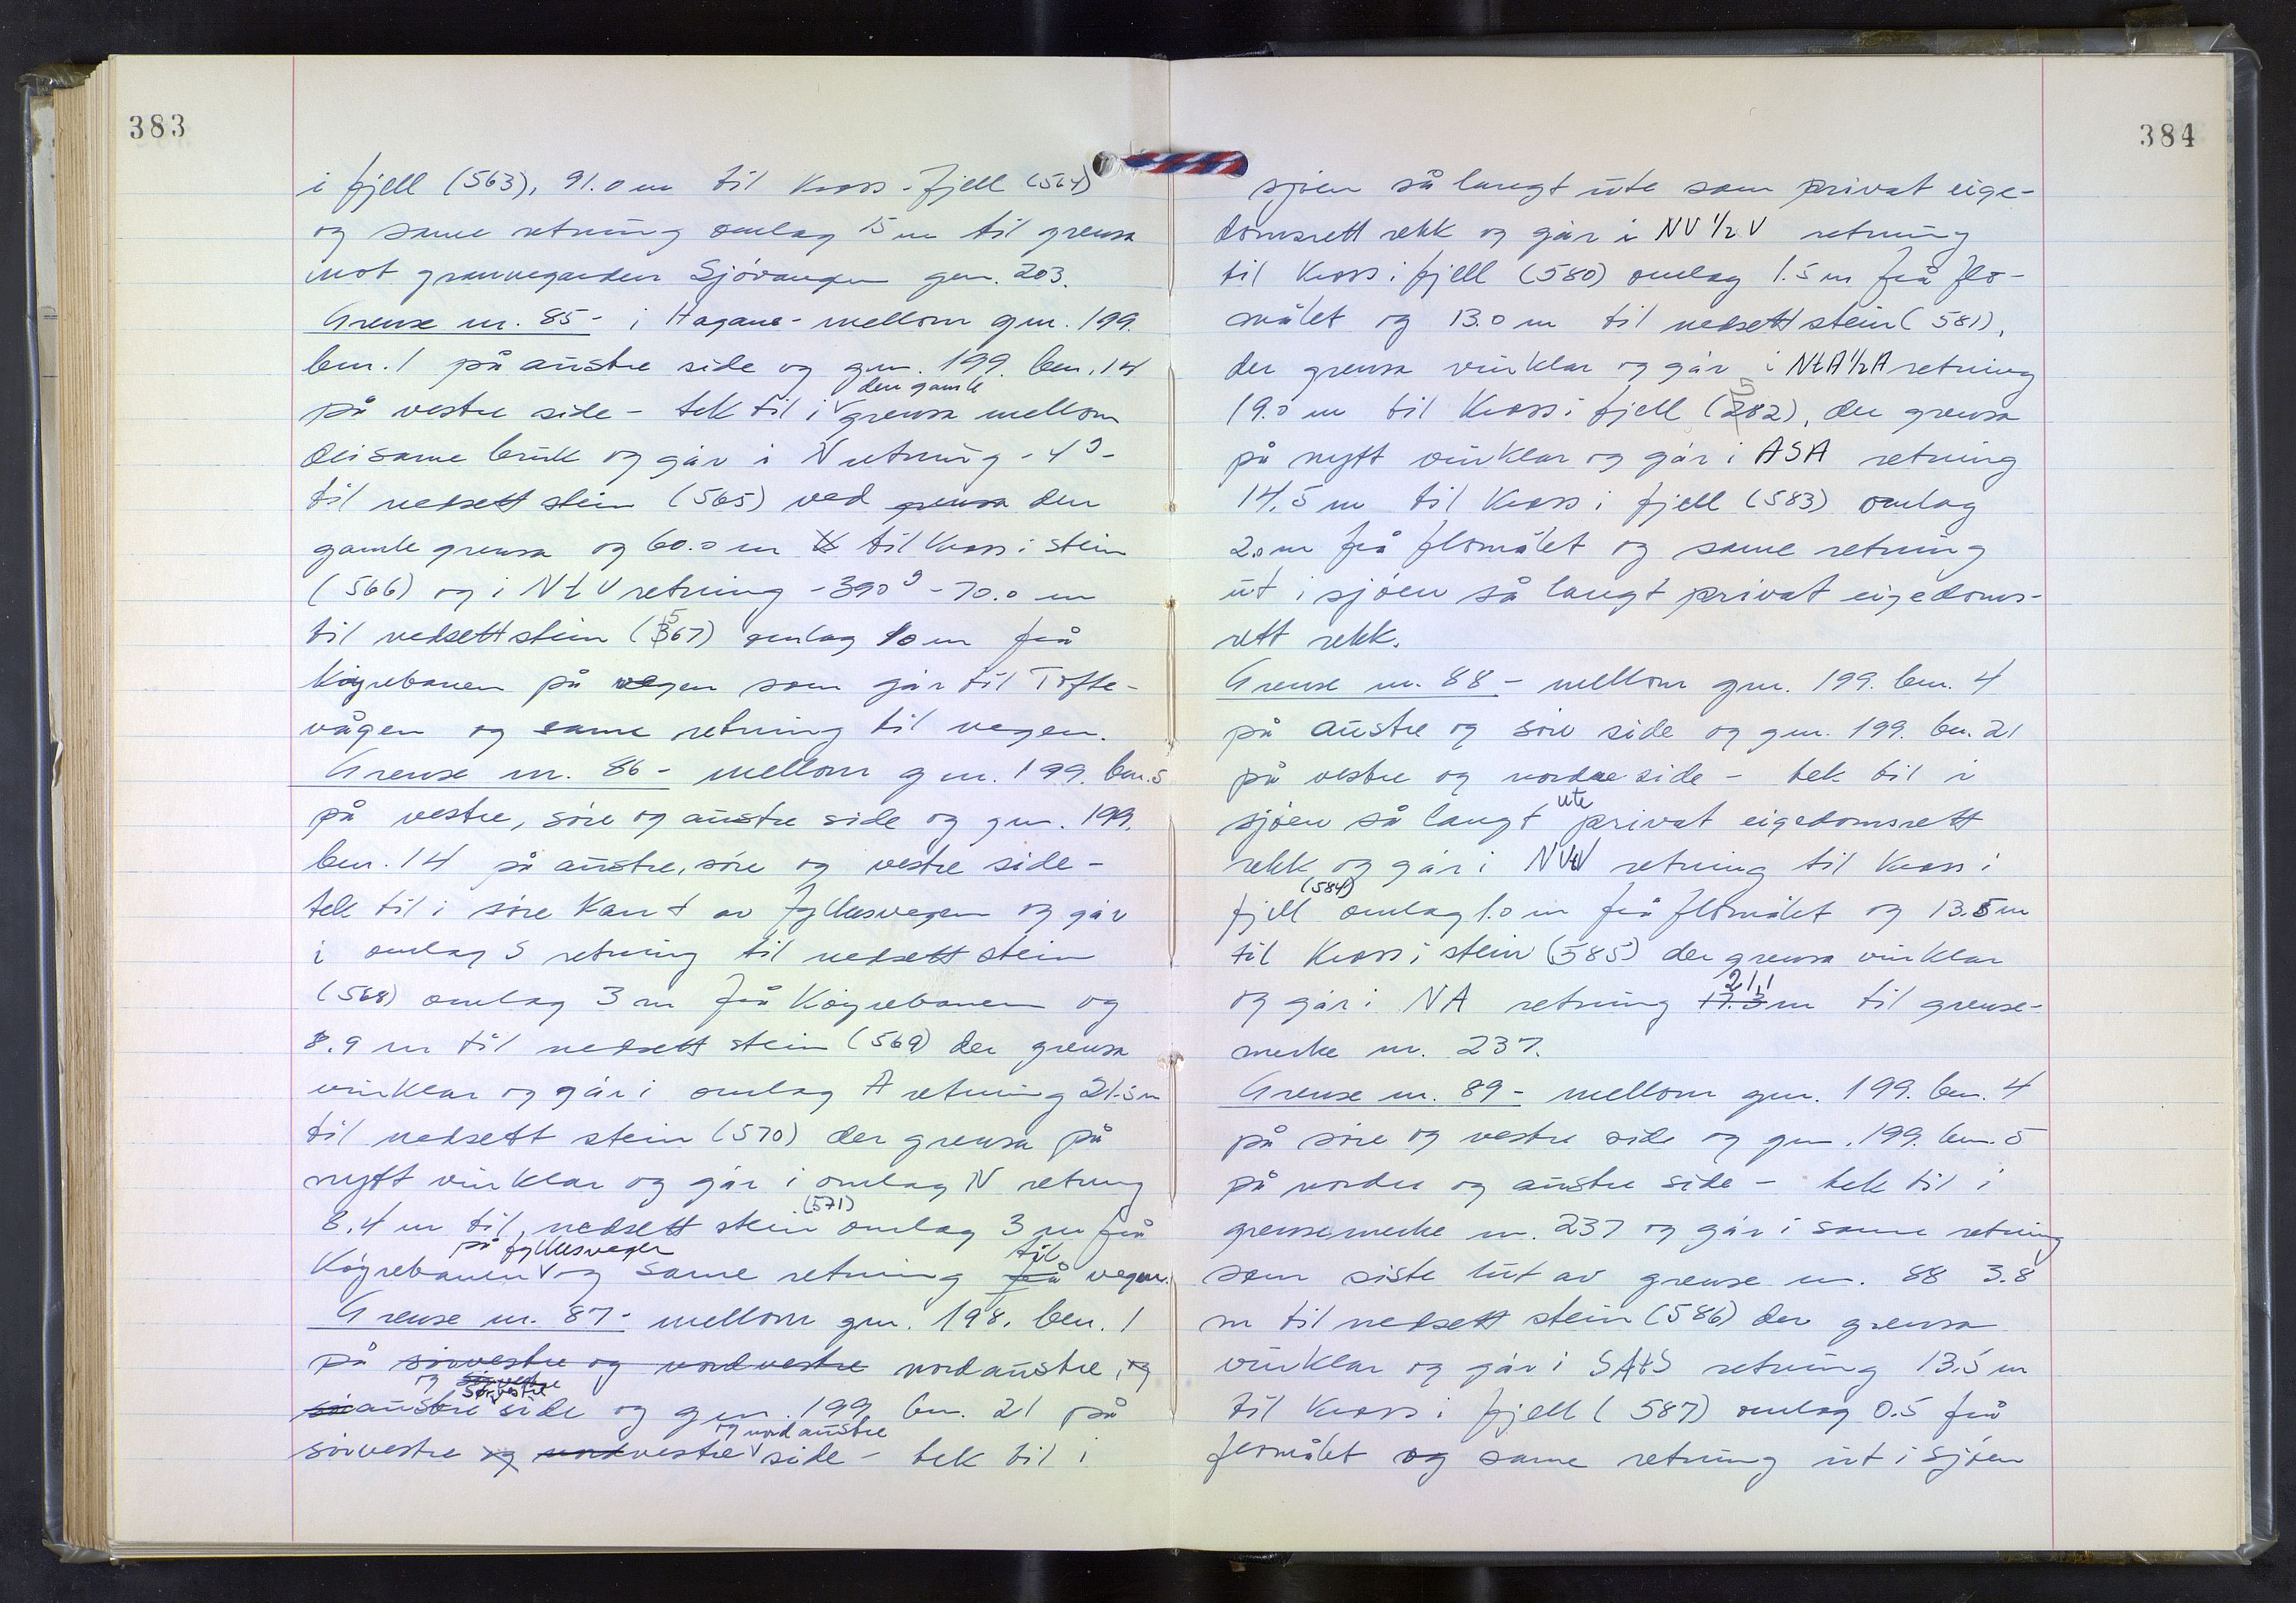 383
i fjell (563), 91.0 m til kross i fjell (564)
og same retning omlag 15 m til grensa
mot grannegarden Sjóvangen gnr. 203.
Grense nr. 85 - i Hagane - mellom gnr. 199.
bnr. 1 på austre side og gnr. 199. bnr. 14
den gamle
på vestre side - tek til i grensa mellom
dei same bruk og går i N retning - 4g -
til nedsett stein (565) ved grensa den
gamle grensa og 60.0 m til kross i stein
(566) og i NtV retning - 390g - 70.0 m
til nedsett stein (567) omlag 10 m frå
Köyrebanen på vegen som går til Tofte-
vågen og same retning til vegen.
Grense nr. 86 - mellom gnr. 199. bnr. 5
på vestre, söre og austre side og gnr. 199.
bnr. 14 på austre, söre og vestre side -
tek til i söre kant av Fyllesvegen og går
i omlag S retning til nedsett stein
(568) omlag 3 m frå Köyrebanen og
8.9 m til nedsett stein (569) der grensa
vinklar og går i omlag A retning 21.5 m
til nedsett stein (570) der grensa på
nytt vinklar og går i omlag N retning
(571)
8.4 m til nedsett stein omlag 3 m frå
på Fyllesvegen til
Köyrebanen og same retning frå vegen.
Grense nr. 87 - mellom gnr. 198. bnr. 1
på sörvestre og nordvestre nordaustre, og
og sörvestre
söraustre side og gnr. 199 bnr. 21 på
og nordaustre
sörvestre og nordvestre side - tek til i
384
sjöen så langt ute som privat eige-
domsrett rekk og går i NV 1/2 V retning
til kross i fjell (580) omlag 1.5 m frå flo-
målet og 13.0 m til nedsett stein (581),
der grensa vinklar og går i NtA 1/2 A retning
5
19.0 m til kross i fjell (282), der grensa
på nytt vinklar og går i ASA retning
14.5 m til kross i fjell (583) omlag
2.0 m frå flomålet og same retning
ut i sjöen så langt privat eigedoms-
rett rekk.
Grense nr. 88 - mellom gnr. 199. bnr. 4
på austre og söre side og gnr. 199. bnr. 21
på vestre og nordre side - tek til i
ute
sjöen så langt privat eigedomsrett
rekk og går i NVtV retning til kross i
(584)
fjell omlag 1.0 m frå flomålet og 13.5 m
til kross i stein (585) der grensa vinklar
21,1
og går i NA retning 17.3 m til grense-
merke nr. 237.
Grense nr. 89 - mellom gnr. 199. bnr. 4
på söre og vestre side og gnr. 199. bnr. 5
på nordre og austre side - tek til i
grensemerke nr. 237 og går i same retning
som siste lut av grense nr. 88 3.8
m til nedsett stein (586) der grensa
vinklar og går i SAtS retning 13.5 m
til kross i fjell (587) omlag 0.5 frå
flomålet og same retning ut i sjöen